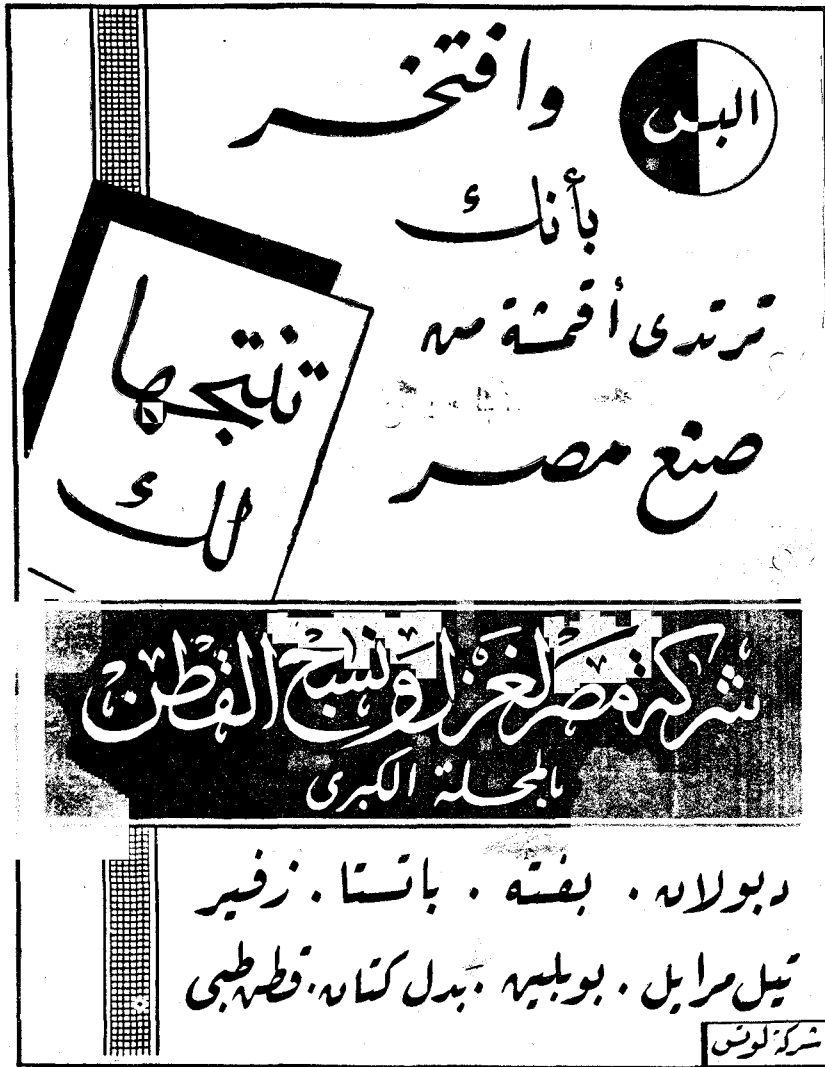 البس وافتخر
بأنك
ترتدى أقمشة من
صنع مصر
تنتجها
لك
شركة مصر لغزل ونسج القطن
بالمحلة الكبرى
دبولان . بفته . باتستا . زفير
تيل مرايل . بوبلين . بدل كتان . قطن طبى
شركة لوتس